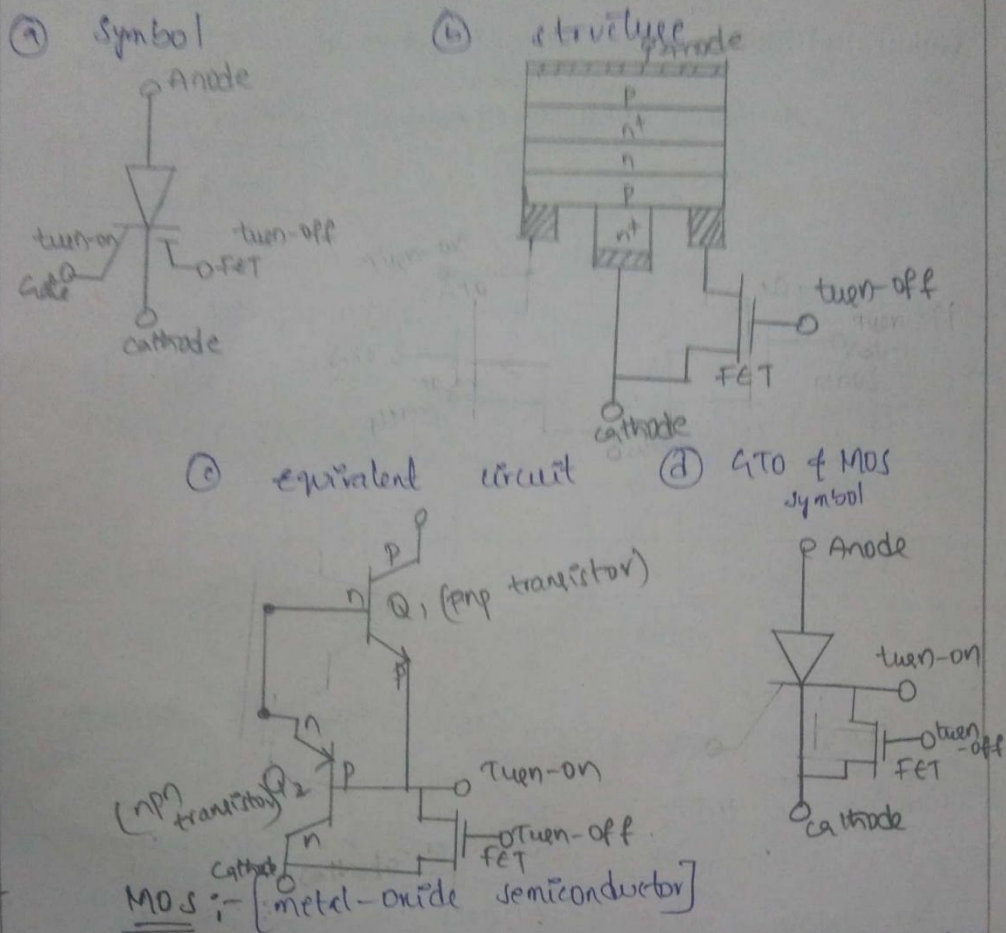 ⓐ Symbol
Anode
turn-on
Gate
turn-off
FET
cathode
ⓑ structure
p
n+
n
p
n+
turn-off
FET
cathode
ⓒ equivalent circuit
p
n
Q1 (pnp transistor)
p
n
Q2
(npn transistor)
p
n
Turn-on
Turn-off
FET
Cathode
ⓓ GTO & MOS
symbol
Anode
turn-on
turn-off
FET
cathode
MOS :- [metal-oxide semiconductor]